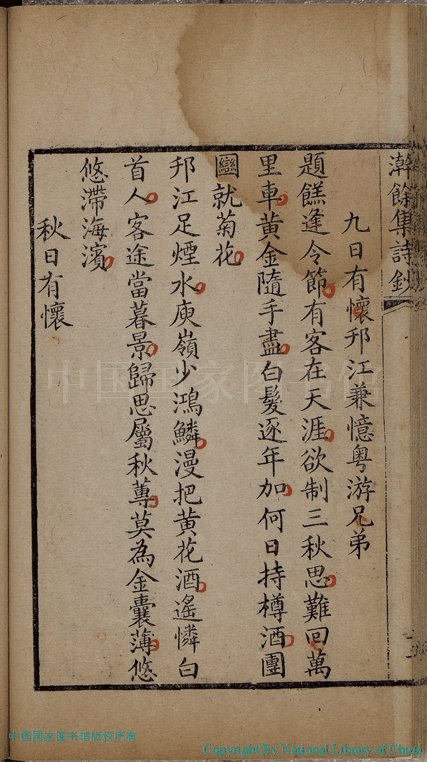 澣餘集詩鈔
九日有懷邗江兼憶粵游兄弟
題餻逢令節有客在天涯欲制三秋思難回萬
里車黃金隨手盡白髮逐年加何日持樽酒團
圞就菊花
邗江足煙水庾嶺少鴻鱗漫把黃花酒遙憐白
首人客途當暮景歸思屬秋蓴莫為金囊薄悠
悠滯海濱
秋日有懷
中国国家图书馆
中国国家图书馆版权所有
Copyright By National Library of China